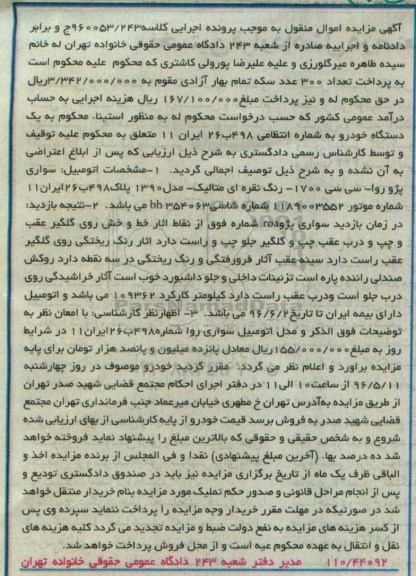 آگهی مزایده اموال منقول به موجب پرونده اجرایی کلاسه۹۶۰۰۵۳/۲۴۳ج و برابر
دادنامه و اجراییه صادره از شعبه ۲۴۳ دادگاه عمومی حقوقی خانواده تهران له خانم
سیده طاهره میرگلورزی و علیه علیرضا پورولی کاشتری که محکوم علیه محکوم است
به پرداخت تعداد ۳۰۰ عدد سکه تمام بهار آزادی مقوم به ۳/۳۴۲/۰۰۰/۰۰۰ریال
در حق محکوم له و نیز پرداخت مبلغ۱۶۷/۱۰۰/۰۰۰ ریال هزینه اجرایی به حساب
درآمد عمومی کشور که حسب درخواست محکوم له به منظور استیفا، محکوم به یک
دستگاه خودرو به شماره انتظامی ۴۹۸ب۲۶ ایران ۱۱ متعلق به محکوم علیه توقیف
و توسط کارشناس رسمی دادگستری به شرح ذیل ارزیابی که پس از ابلاغ اعتراضی
به آن نشده و به شرح ذیل توصیف اجمالی گردید. ۱-مشخصات اتومبیل: سواری
پژو روا- سی سی ۱۷۰۰- رنگ نقره ای متالیک- مدل۱۳۹۰ پلاک۴۹۸ب۲۶ایران۱۱
شماره موتور ۱۱۸۹۰۰۳۵۵۲ شماره شاسیbh ۳۵۴۰۶۳ می باشد. ۲-نتیجه بازدید:
در زمان بازدید سواری پژوroa شماره فوق از نقاط اثار خط و خش روی گلگیر عقب
و چپ و درب عقب چپ و گلگیر جلو چپ و راست دارد اثار رنگ ریختگی روی گلگیر
عقب راست دارد سینه عقب آثار فرورفتگی و رنگ ریختگی در سه نقطه دارد روکش
صندلی راننده پاره است تزئینات داخلی و جلو داشبورد خوب است آثار خراشیدگی روی
درب جلو است ودرب عقب راست دارد کیلومتر کارکرد ۱۰۹۳۶۲ می باشد و اتومبیل
دارای بیمه ایران تا تاریخ۹۶/۶/۲ می باشد. ۳- اظهارنظر کارشناسی: با امعان نظر به
توضیحات فوق الذکر و مدل اتومبیل سواری روا شماره۴۹۸ب۲۶ایران۱۱ در شرایط
روز به مبلغ۱۵۵/۰۰۰/۰۰۰ریال معادل پانزده میلیون و پانصد هزار تومان برای پایه
مزایده براورد و اعلام نظر می گردد. مقرر گردید خودرو موصوف در روز چهارشنبه
۹۶/۵/۱۱ از ساعت۱۰ الی۱۱ در دفتر اجرای احکام مجتمع قضایی شهید صدر تهران
از طریق مزایده به‌آدرس تهران خ مطهری خیابان میرعماد جنب فرمانداری تهران مجتمع
قضایی شهید صدر به فروش برسد قیمت خودرو از پایه کارشناسی از بهای ارزیابی شده
شروع و به شخص حقیقی و حقوقی که بالاترین مبلغ را پیشنهاد نماید فروخته خواهد
شد ده درصد بها، (آخرین مبلغ پیشنهادی) نقدا و فی المجلس از برنده مزایده اخذ و
الباقی ظرف یک ماه از تاریخ برگزاری مزایده نیز باید در صندوق دادگستری تودیع و
پس از انجام مراحل قانونی و صدور حکم تملیک مورد مزایده بنام خریدار منتقل خواهد
شد در صورتیکه در مهلت مقرر خریدار وجه مزایده را پرداخت ننماید سپرده وی پس
از کسر هزینه های مزایده به نفع دولت ضبط و مزایده تجدید می گردد کلیه هزینه های
نقل و انتقال به عهده محکوم علیه است و از محل فروش پرداخت خواهد شد.
۱۱۰/۴۴۰۹۲ مدیر دفتر شعبه ۲۴۳ دادگاه عمومی حقوقی خانواده تهران